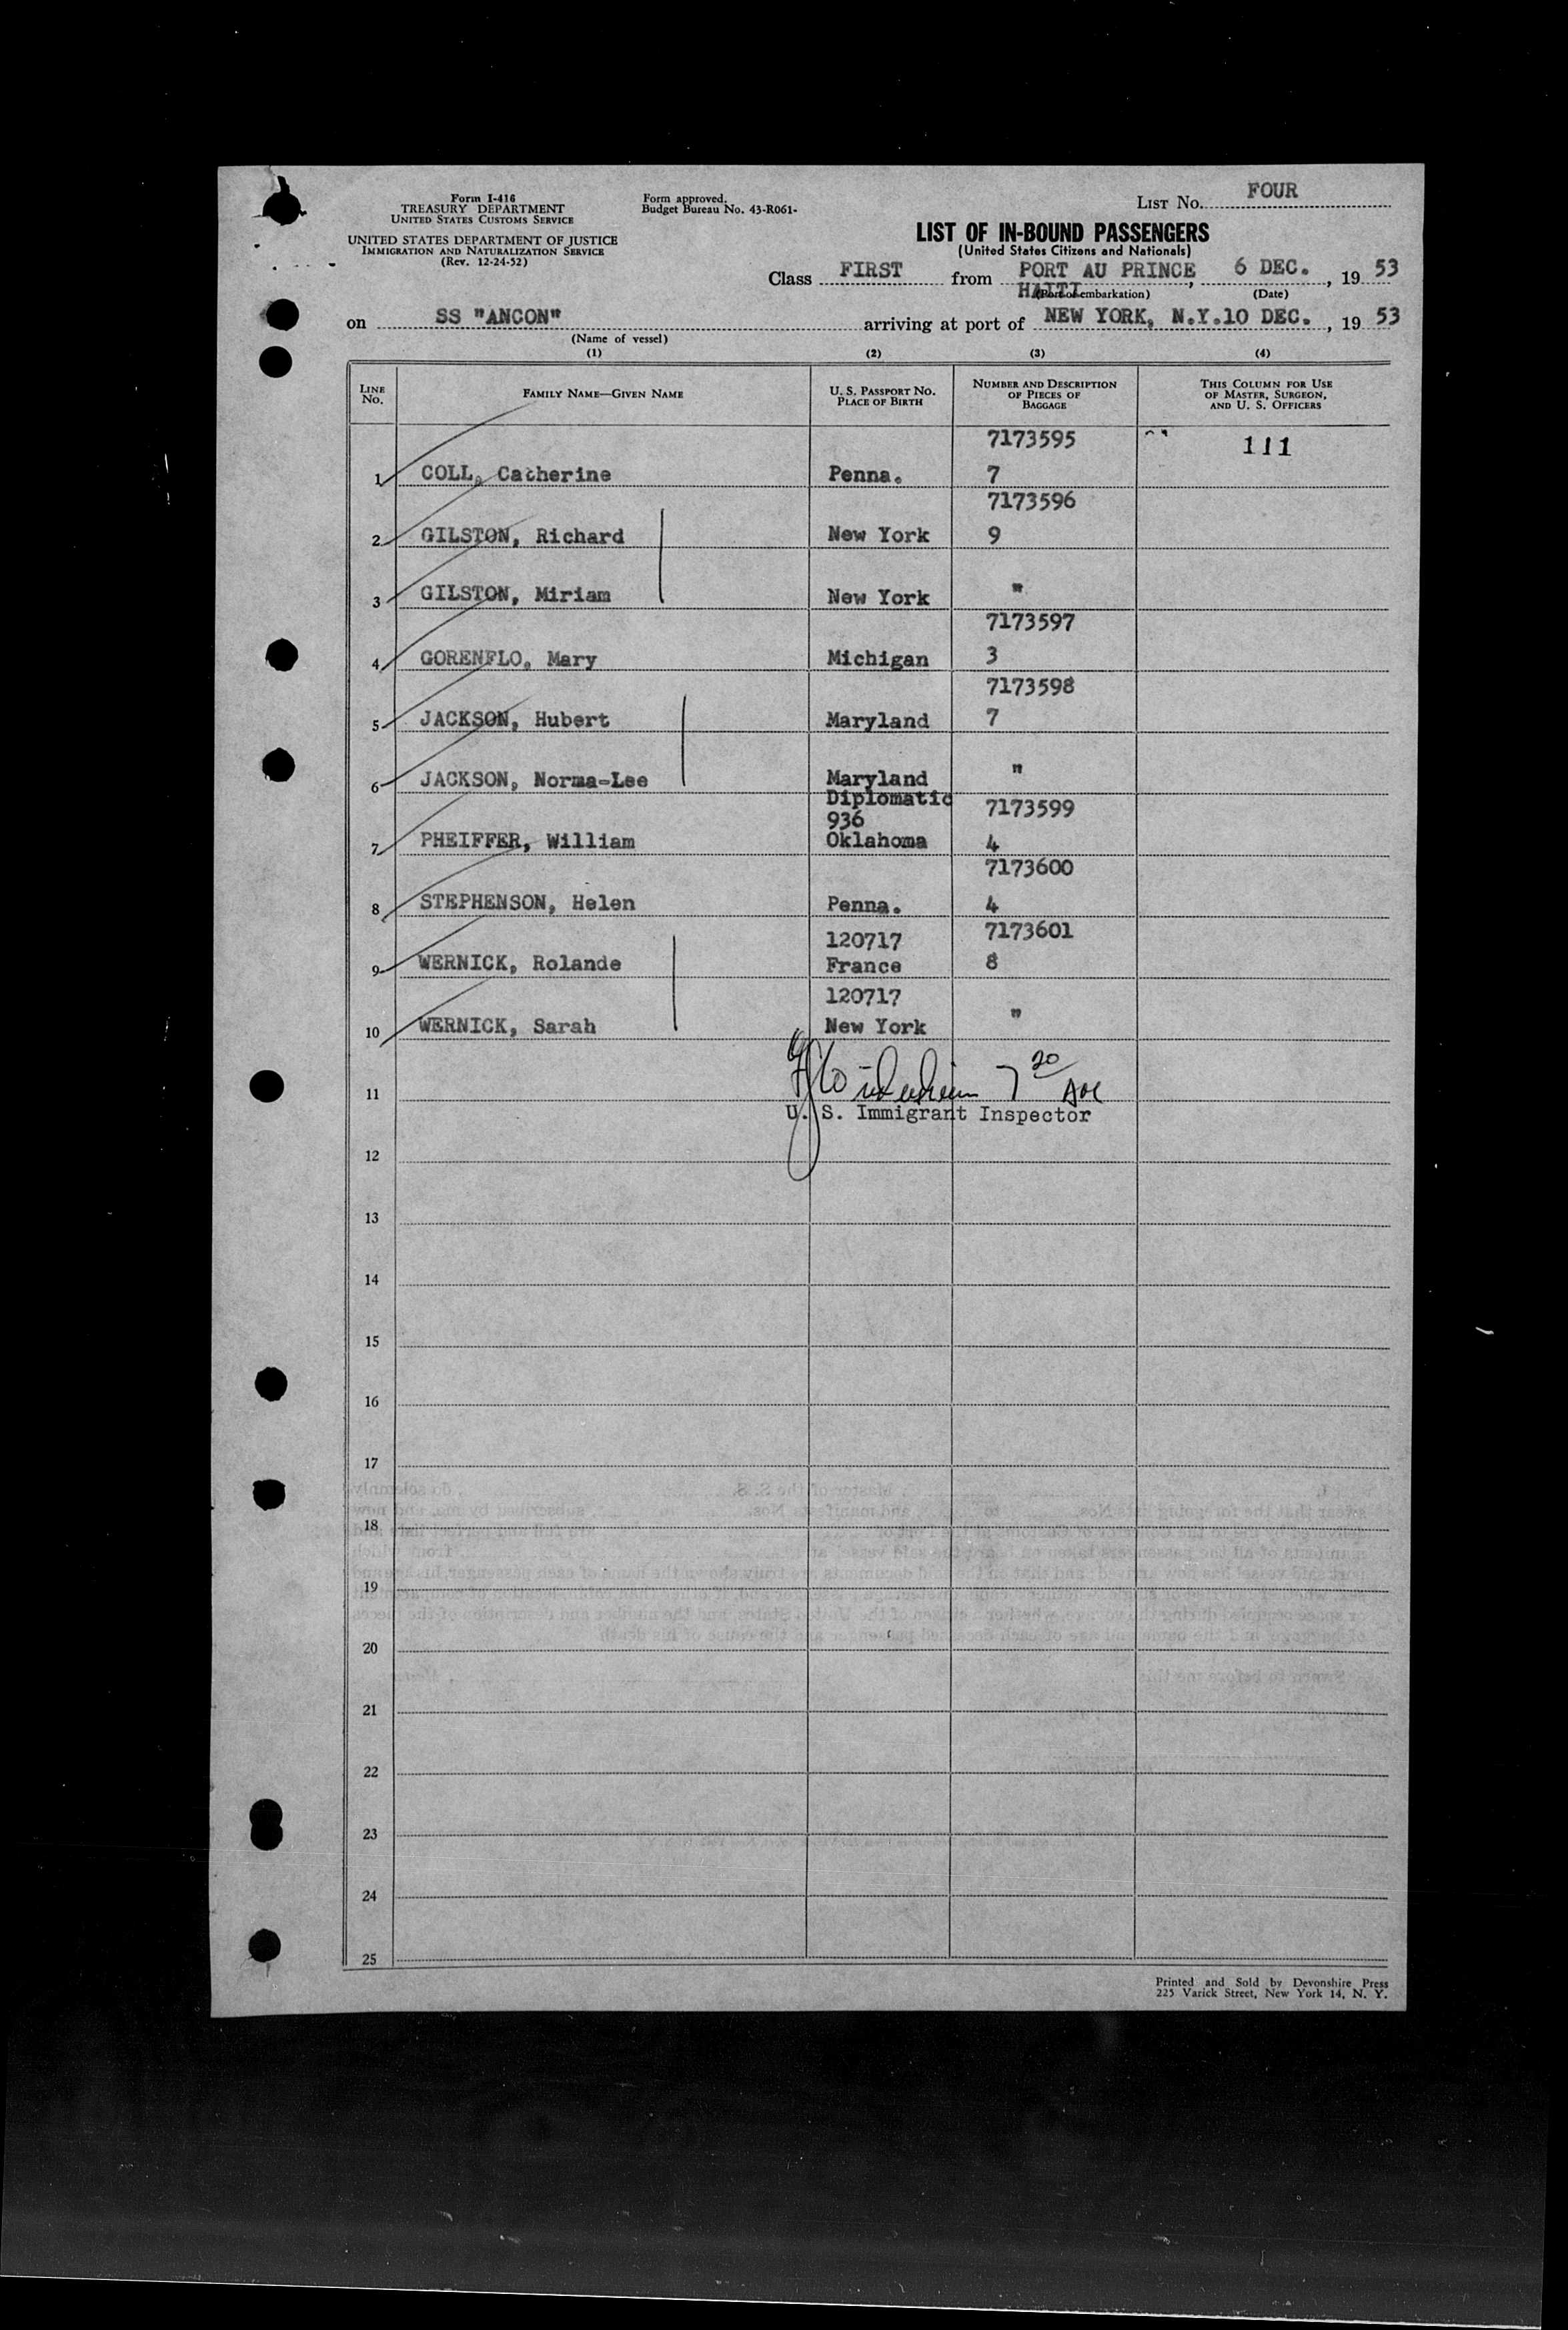 Form I-416
TREASURY DEPARTMENT
UNITED STATES CUSTOMS SERVICE
UNITED STATES DEPARTMENT OF JUSTICE
IMMIGRATION AND NATURALIZATION SERVICE
(Rev. 12-24-52)
Form approved.
Budget Bureau No. 43-R061-
LIST No. FOUR
LIST OF IN-BOUND PASSENGERS
(United States Citizens and Nationals)
Class FIRST from PORT AU PRINCE, 6 DEC., 19 53
HAITI (Port of embarkation) (Date)
on SS "ANCON" arriving at port of NEW YORK, N.Y. 10 DEC., 19 53
(Name of vessel)
(1) (2) (3) (4)
LINE No. FAMILY NAME—GIVEN NAME U. S. PASSPORT NO. PLACE OF BIRTH NUMBER AND DESCRIPTION OF PIECES OF BAGGAGE THIS COLUMN FOR USE OF MASTER, SURGEON, AND U. S. OFFICERS
7173595 111
1 COLL, Catherine Penna. 7
7173596
2 GILSTON, Richard New York 9
3 GILSTON, Miriam New York "
7173597
4 GORENFLO, Mary Michigan 3
7173598
5 JACKSON, Hubert Maryland 7
6 JACKSON, Norma-Lee Maryland "
Diplomatic 7173599
936
7 PHEIFFER, William Oklahoma 4
7173600
8 STEPHENSON, Helen Penna. 4
120717 7173601
9 WERNICK, Rolande France 8
120717
10 WERNICK, Sarah New York "
7 20
11
U. S. Immigrant Inspector
12
13
14
15
16
17
18
19
20
21
22
23
24
25
Printed and Sold by Devonshire Press
225 Varick Street, New York 14, N. Y.